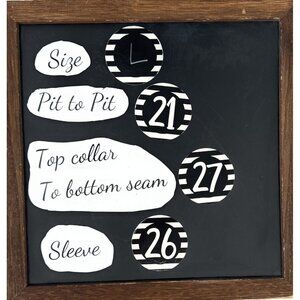 Size L
Pit to Pit 21
Top collar
To bottom seam 27
Sleeve 26